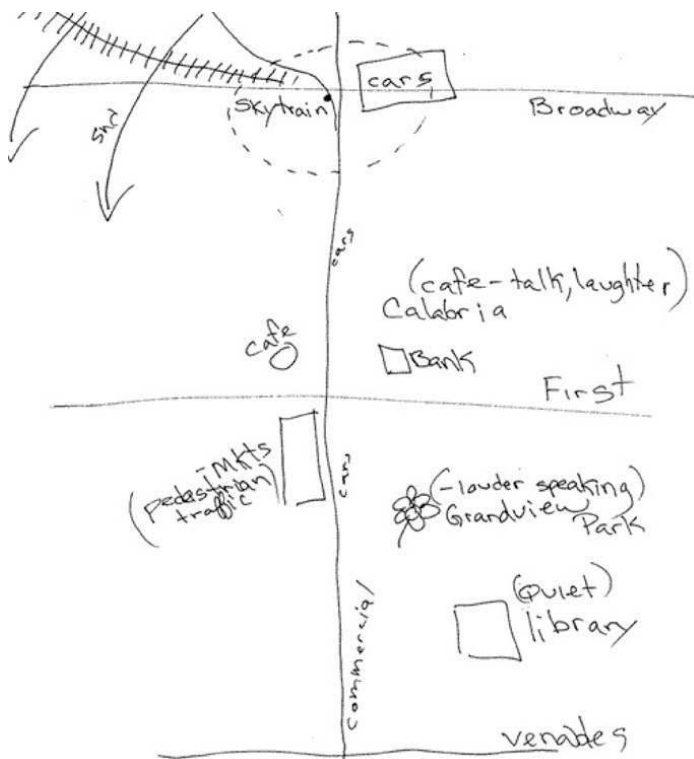 cars
Skytrain
Broadway
cars
(cafe - talk, laughter)
Calabria
cafe
Bank
First
- Mkts
(pedestrian
traffic)
cars
(- louder speaking)
Grandview
Park
(Quiet)
library
commercial
venables